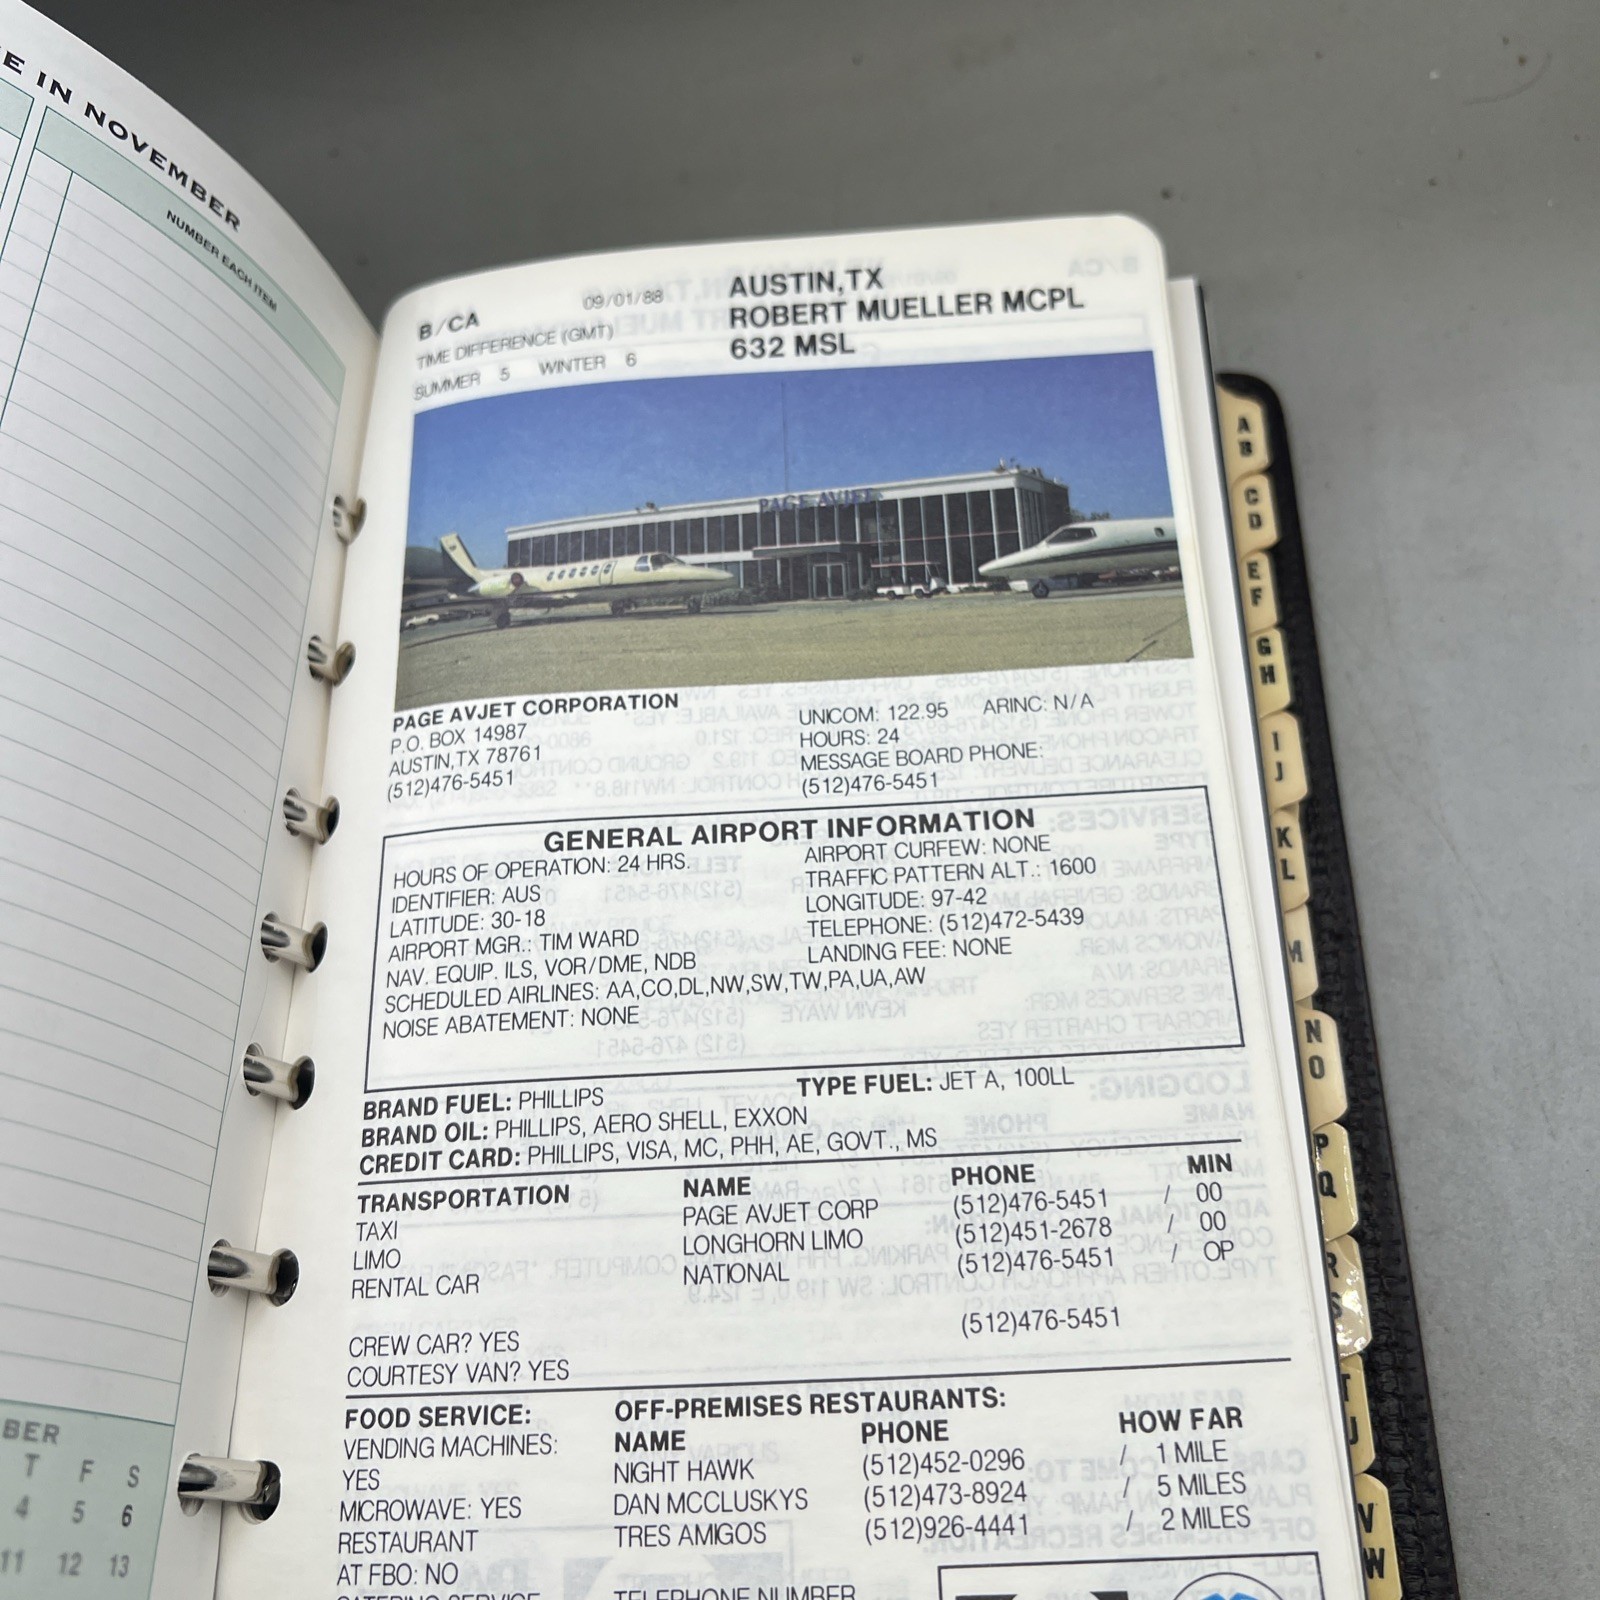 E IN NOVEMBER
NUMBER EACH ITEM
BER
T F S
4 5 6
11 12 13
B/CA
09/01/88
TIME DIFFERENCE (GMT)
SUMMER 5 WINTER 6
AUSTIN,TX
ROBERT MUELLER MCPL
632 MSL
PAGE AVJET
PAGE AVJET CORPORATION
P.O. BOX 14987
AUSTIN,TX 78761
(512)476-5451
UNICOM: 122.95 ARINC: N/A
HOURS: 24
MESSAGE BOARD PHONE:
(512)476-5451
GENERAL AIRPORT INFORMATION
HOURS OF OPERATION: 24 HRS.
IDENTIFIER: AUS
LATITUDE: 30-18
AIRPORT MGR.: TIM WARD
NAV. EQUIP. ILS, VOR/DME, NDB
SCHEDULED AIRLINES: AA,CO,DL,NW,SW,TW,PA,UA,AW
NOISE ABATEMENT: NONE
AIRPORT CURFEW: NONE
TRAFFIC PATTERN ALT.: 1600
LONGITUDE: 97-42
TELEPHONE: (512)472-5439
LANDING FEE: NONE
BRAND FUEL: PHILLIPS TYPE FUEL: JET A, 100LL
BRAND OIL: PHILLIPS, AERO SHELL, EXXON
CREDIT CARD: PHILLIPS, VISA, MC, PHH, AE, GOVT., MS
TRANSPORTATION NAME PHONE MIN
TAXI PAGE AVJET CORP (512)476-5451 / 00
LIMO LONGHORN LIMO (512)451-2678 / 00
RENTAL CAR NATIONAL (512)476-5451 / OP
(512)476-5451
CREW CAR? YES
COURTESY VAN? YES
FOOD SERVICE:
VENDING MACHINES:
YES
MICROWAVE: YES
RESTAURANT
AT FBO: NO
CATERING SERVICE
OFF-PREMISES RESTAURANTS:
NAME PHONE HOW FAR
NIGHT HAWK (512)452-0296 / 1 MILE
DAN MCCLUSKYS (512)473-8924 / 5 MILES
TRES AMIGOS (512)926-4441 / 2 MILES
TELEPHONE NUMBER
A
B
C
D
E
F
G
H
I
J
K
L
M
N
O
P
Q
R
S
T
U
V
W